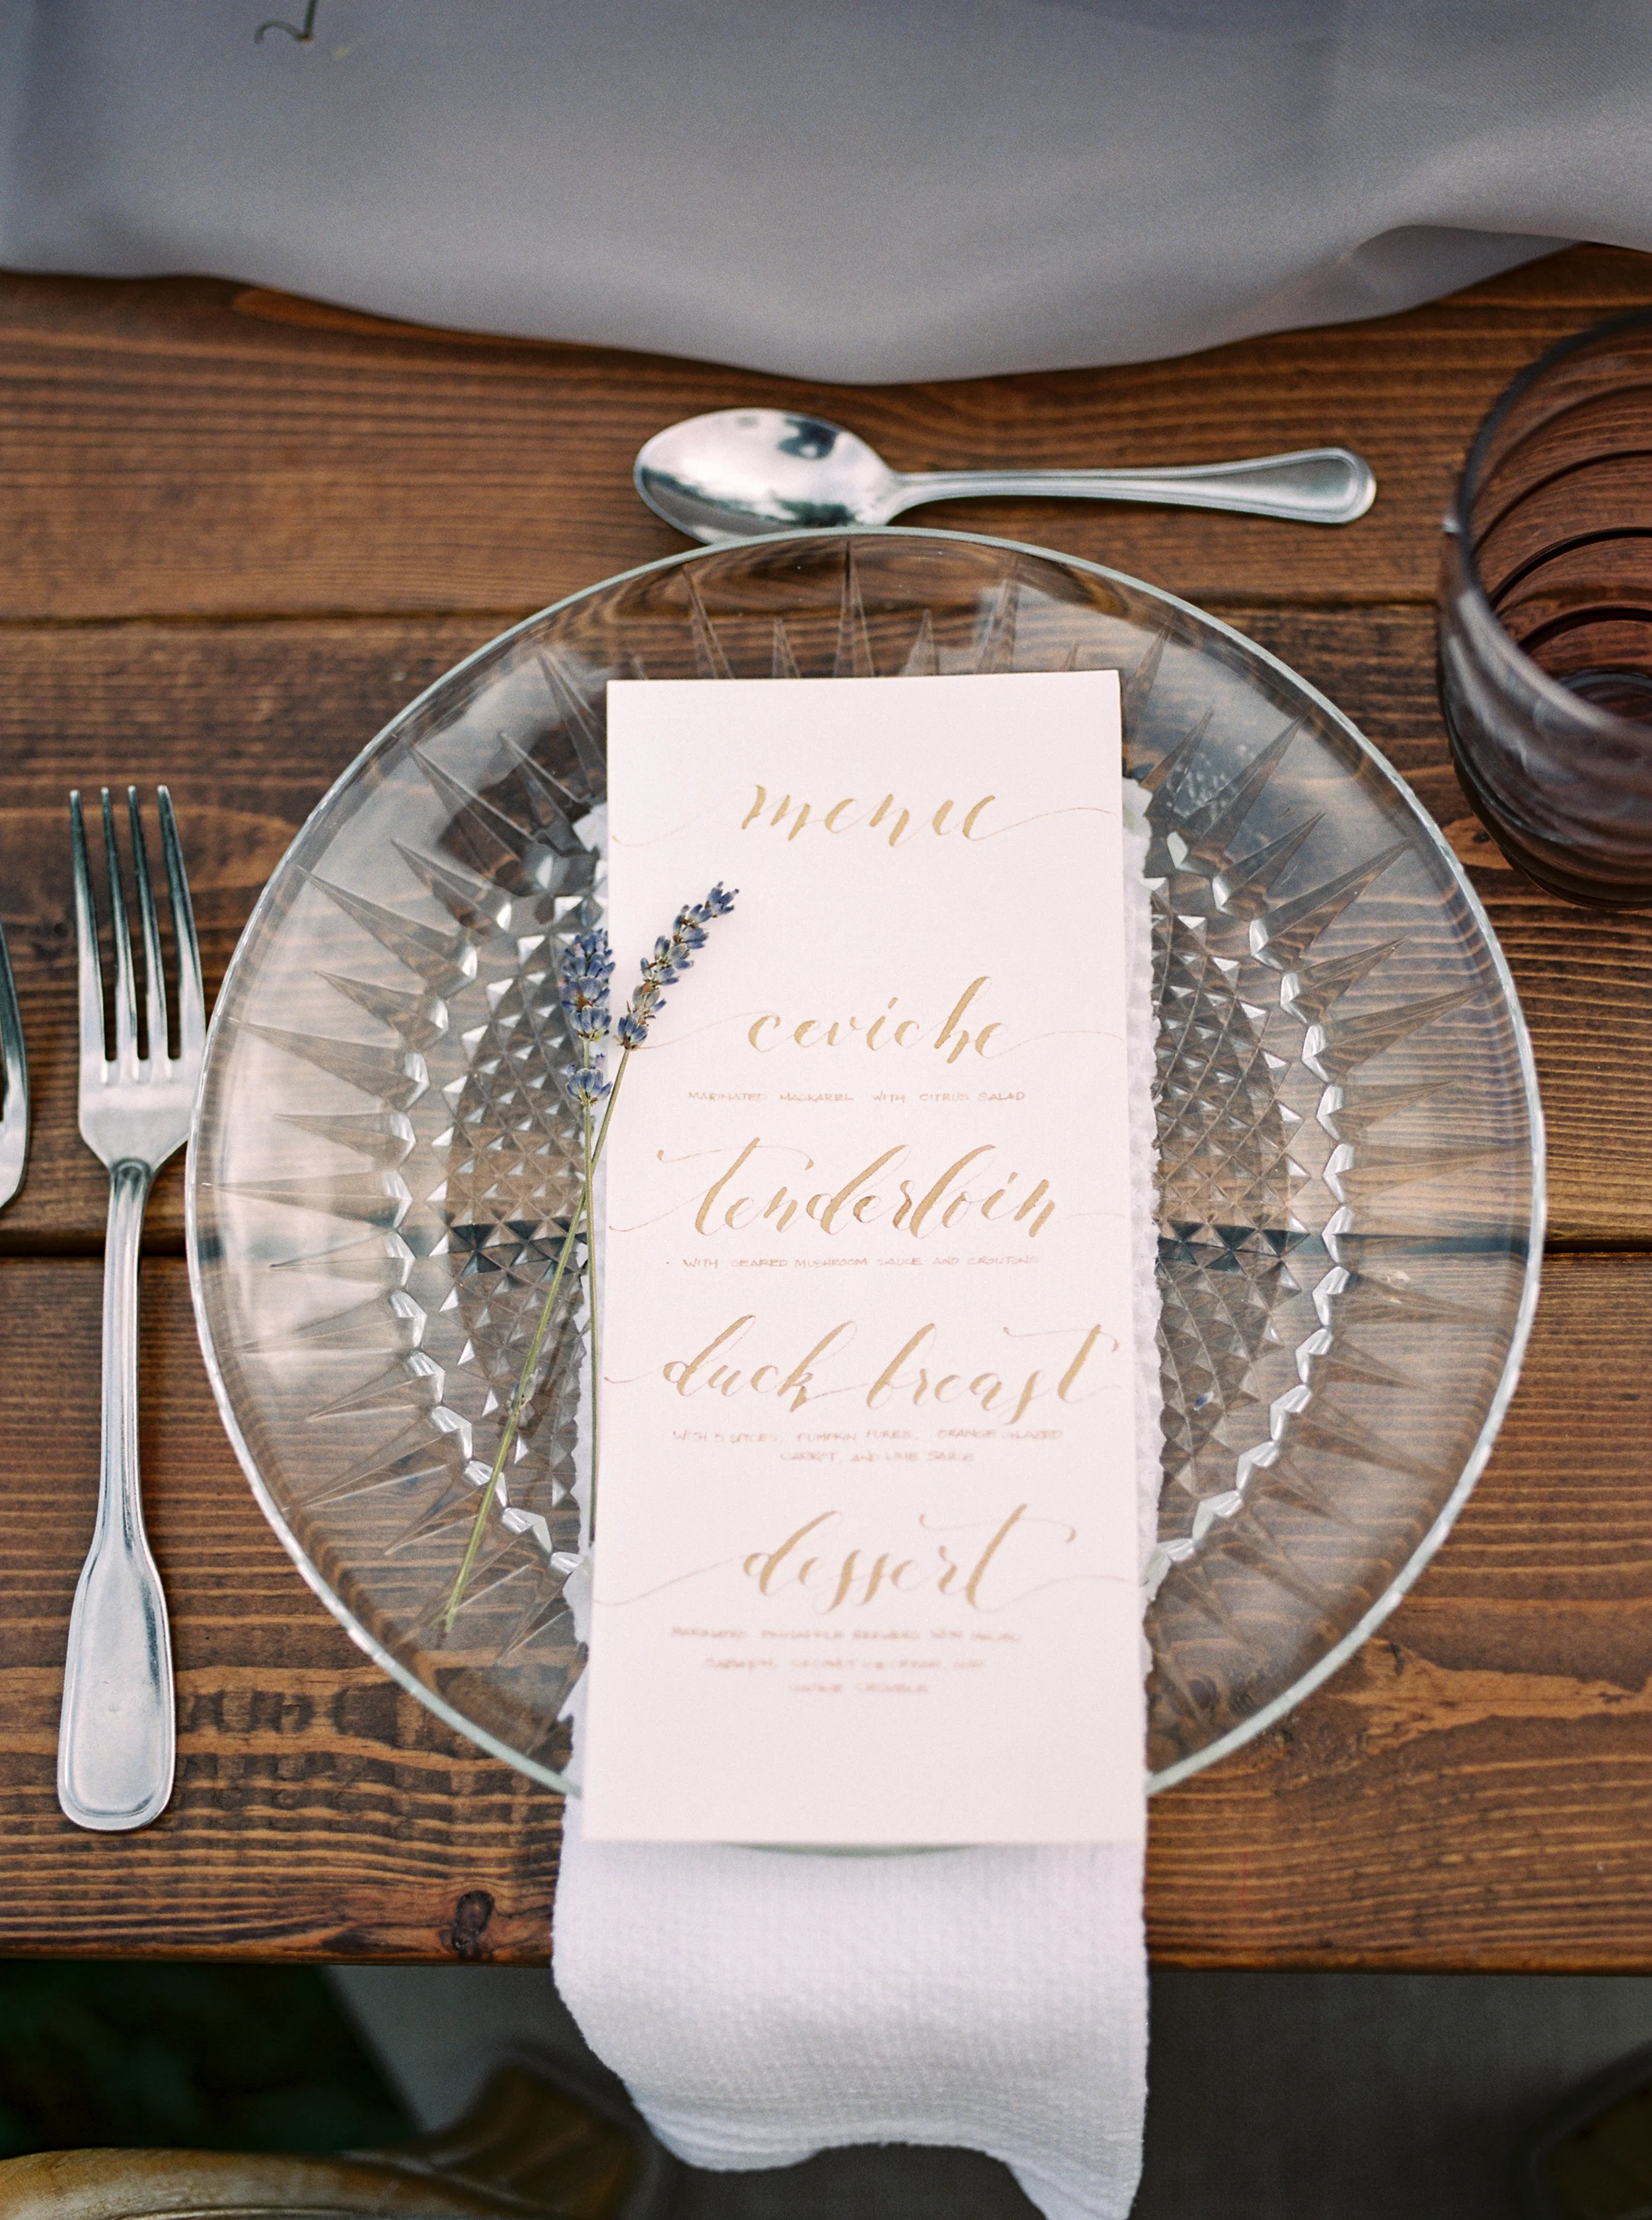 menu
ceviche
MARINATED MACKAREL WITH CITRUS SALAD
tenderloin
WITH SEARED MUSHROOM SAUCE AND CROUTONS
duck breast
WITH 5 SPICES, PUMPKIN PUREE, ORANGE GLAZED
CARROT, AND LIME SAUCE
dessert
MARINATED PINEAPPLE SKEWERS WITH
COCONUT ICE CREAM,